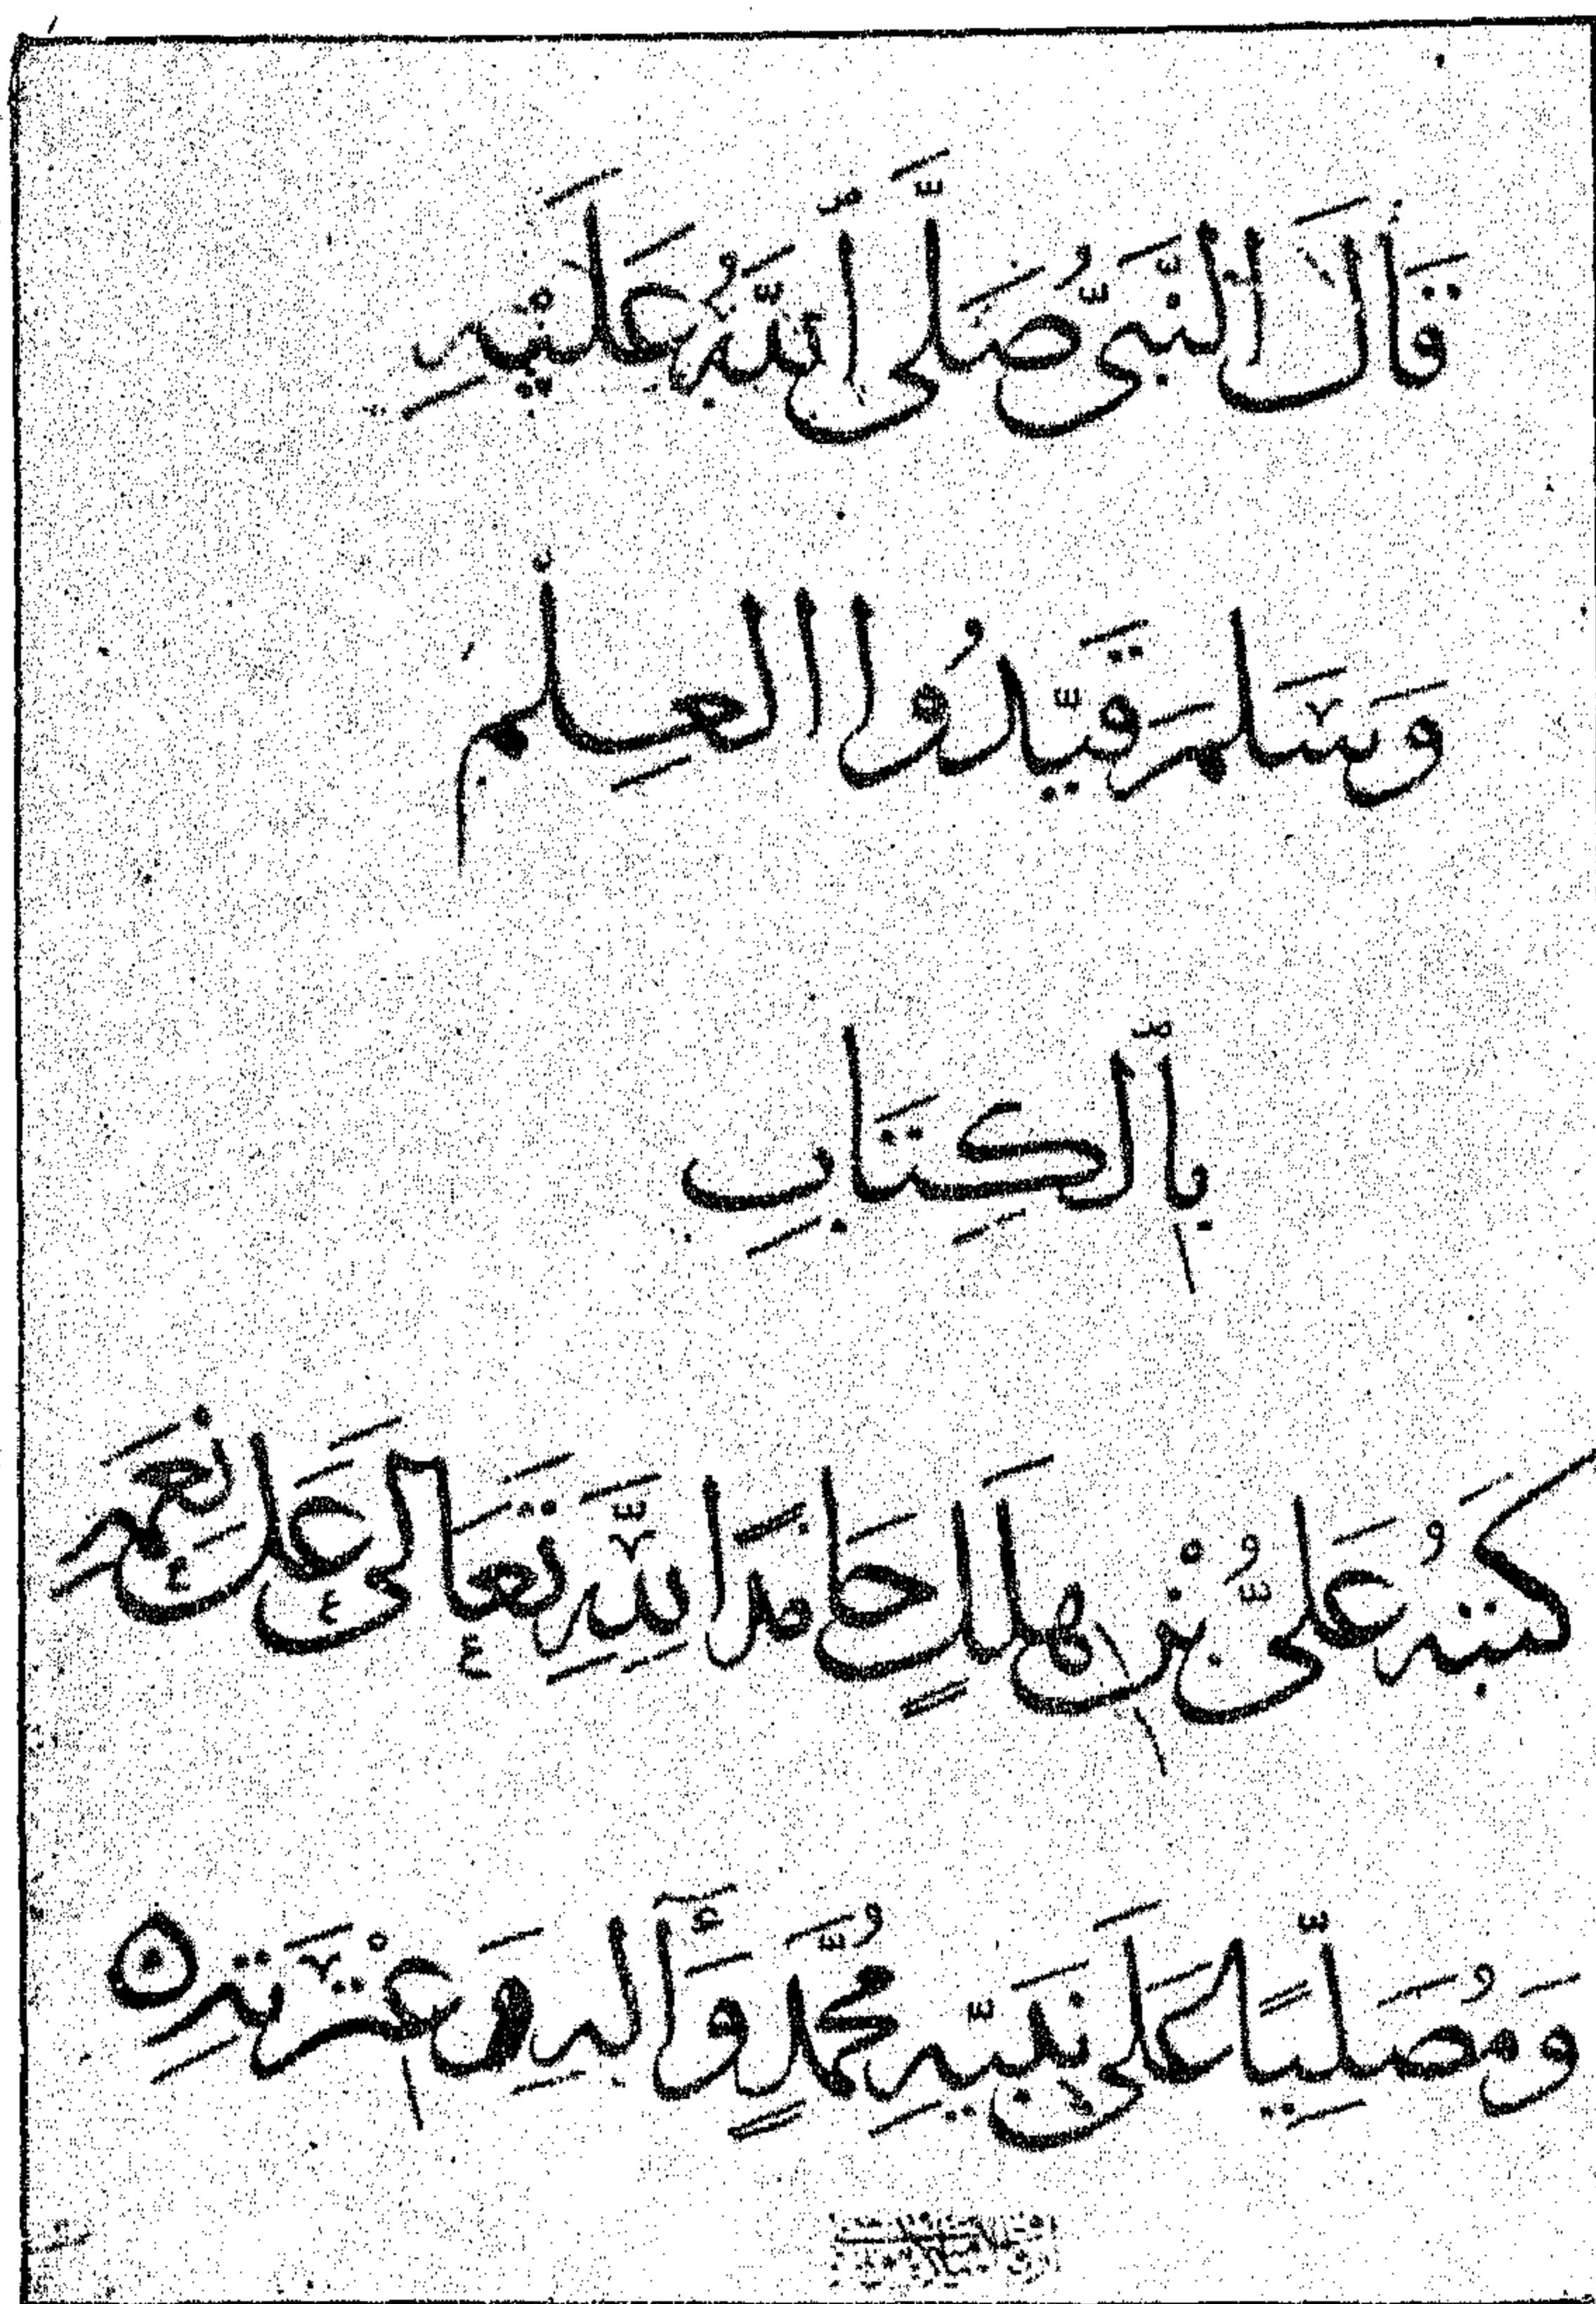 قَالَ ٱلنَّبِىُّ صَلَّى ٱللَّهُ عَلَيْهِ
وَسَلَّمَ قَيِّدُوا العِلْمَ
بِٱلكِتَابِ
كَتَبَهُ عَلِىُّ بْنُ هِلَالٍ حَامِدًا لِلَّهِ تَعَالَى عَلَى نِعَمِهِ
وَمُصَلِّيًا عَلَى نَبِيِّهِ مُحَمَّدٍ وَآلِهِ وَعِتْرَتِهِ